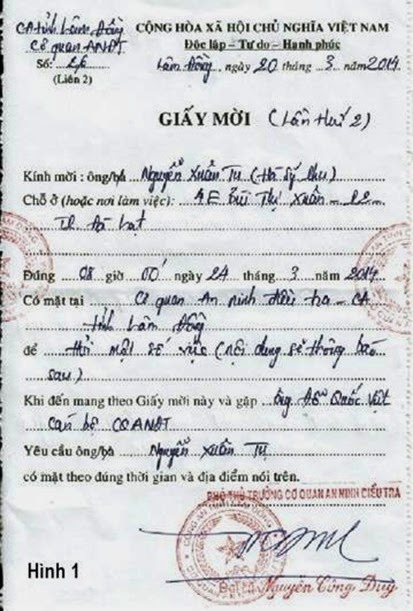 CA tỉnh Lâm Đồng CỘNG HÒA XÃ HỘI CHỦ NGHĨA VIỆT NAM
Cơ quan ANĐT Độc lập – Tự do – Hạnh phúc
Số: 26 Lâm Đồng, ngày 20 tháng 3 năm 2014
(Liên 2)
GIẤY MỜI (Lần thứ 2)
Kính mời : ông/bà Nguyễn Xuân Tụ (Hà Sỹ Phu)
Chỗ ở (hoặc nơi làm việc): 4E Bùi Thị Xuân - P2 -
TP. Đà Lạt
Đúng 08 giờ 00 ngày 24 tháng 3 năm 2014
Có mặt tại Cơ quan An ninh điều tra - CA
tỉnh Lâm Đồng
để Hỏi một số việc (nội dung sẽ thông báo
sau)
Khi đến mang theo Giấy mời này và gặp ông Quốc Việt
Cán bộ CQANĐT
Yêu cầu ông/bà Nguyễn Xuân Tụ
có mặt theo đúng thời gian và địa điểm nói trên.
PHÓ THỦ TRƯỞNG CƠ QUAN AN NINH ĐIỀU TRA
Đại tá Nguyễn Công Duy
Hinh 1